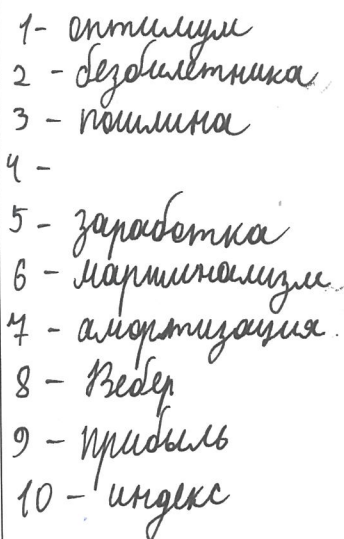 1- оптимум
2 - безбилетника
3 - пошлина
4 -
5 - заработка
6 - маржинализм
7 - амортизация.
8 - Вебер
9 - прибыль
10 - индекс